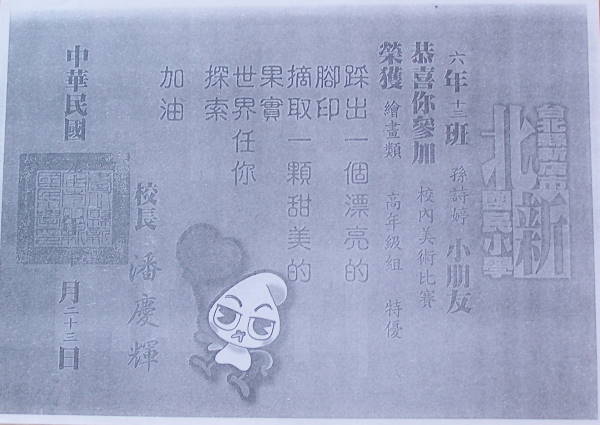 北新
國民小學
六年十三班 孫詩婷 小朋友
恭喜你參加 校內美術比賽
榮獲 繪畫類 高年級組 特優
踩出一個漂亮的
腳印
摘取一顆甜美的
果實
世界任你
探索
加油
校長 潘慶輝
中華民國
月二十三日